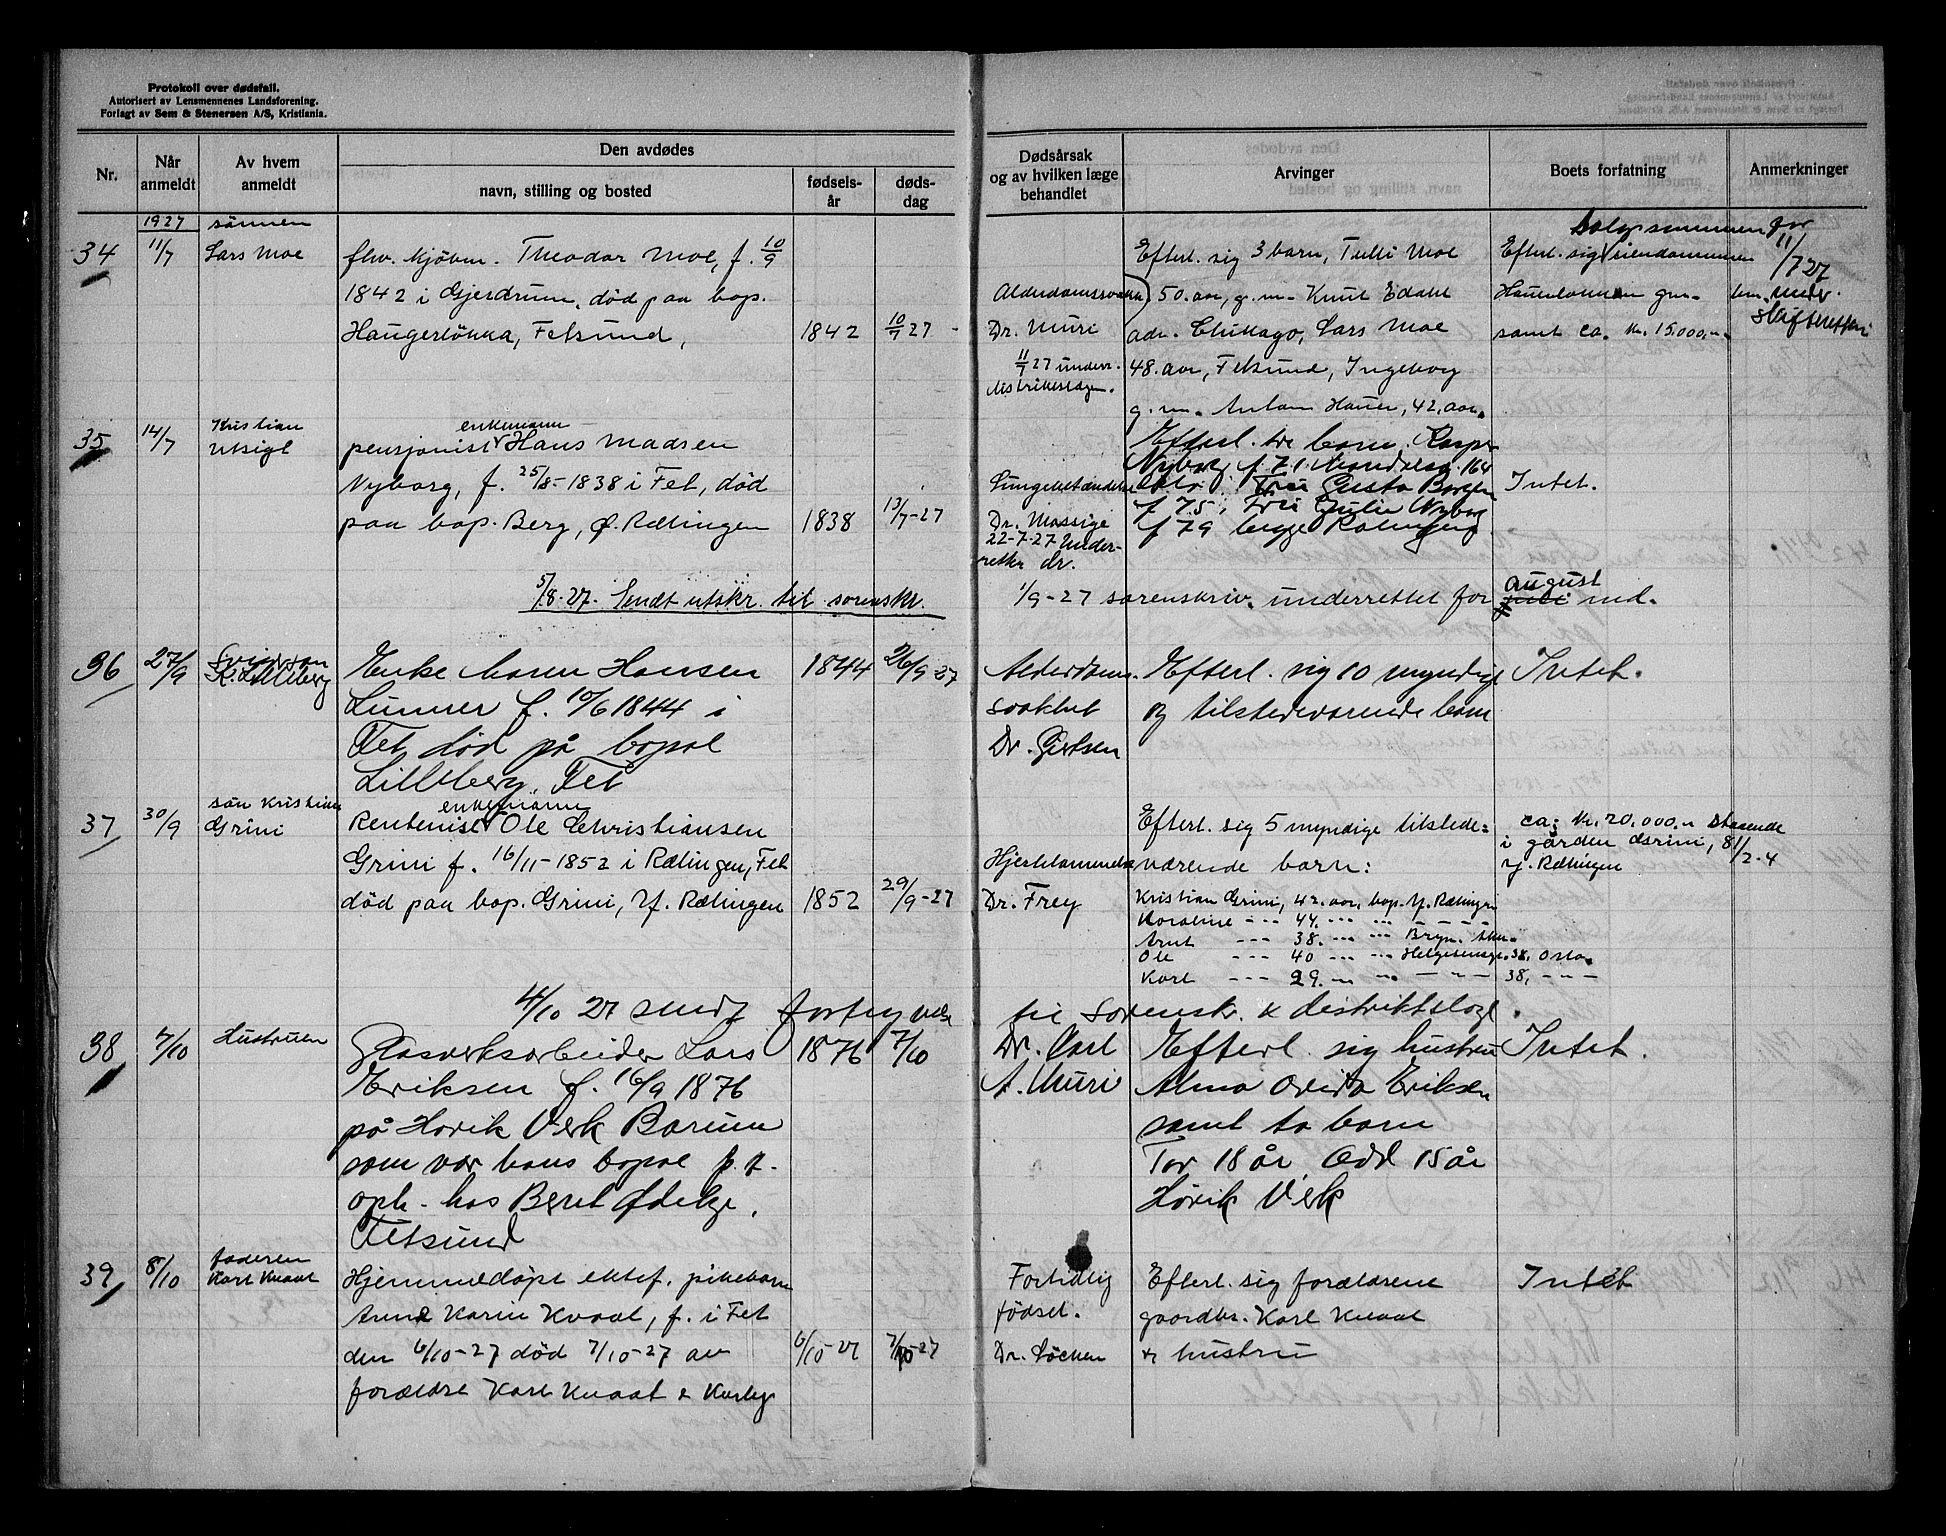 Protokoll over dødsfall.
Autorisert av Lensmennenes Landsforening.
Forlagt av Sem & Stenersen A/S, Kristiania.
Nr.
Når anmeldt
Av hvem anmeldt
Den avdødes
navn, stilling og bosted
fødsels-år
døds-dag
Dødsårsak og av hvilken læge behandlet
Arvinger
Boets forfatning
Anmerkninger
1927
34
11/7
sönnen
Lars Moe
fhv. kjöbm. Theodor Moe, f. 10/9
1842 i Gjerdrum, död paa bop.
Haugerlökka, Fetsund,
1842
10/7 27
Dr. Muri
11/7 27 underr.
Efterl. sig 3 barn, Tulli Moe
50. aar, g.m. Knut Edahl
adr. Chikago, Lars Moe
48. aar, Fetsund, Ingeborg
g.m. Anton Hauer, 42. aar.
Efterl. sig
samt ca. kr. 15.000,-
11/7 27
35
14/7
Kristian
Utsigt
enkemann
pensjonist Hans Madsen
Nyborg, f. 25/8-1838 i Fet, död
paa bop. Berg, Ø. Rælingen
1838
13/7-27
Dr. Mossige
22-7-27 Under-
rettet dr.
Efterl. tre barn. Kasper
Nyborg f 71
f 75, Fru Julie Nyborg
f 79 begge Rælingen
Intet.
5/8-27. Sendt utskr. til sorenskr.
1/9-27 sorenskriv. underrettet for august md.
36
27/9
Svigersøn
K. Lilleberg
Enke Maren Hansen
Lunner f. 10/6 1844 i
Fet død på bopæl
Lilleberg, Fet
1844
26/9 27
Alderdoms-
svakhet
Dr. Giertsen
Efterl. sig 10 myndige
og tilstedeværende barn
Intet.
37
30/9
sön Kristian
Grini
enkemann
Rentenist Ole Christiansen
Grini f. 16/11-1852 i Rælingen, Fet
död paa bop. Grini, Y. Rælingen
1852
29/9-27
Dr. Frey
Efterl. sig 5 myndige tilstede=
værende barn:
Kristian Grini, 42. aar, bop. Y. Rælingen
Karoline --- 44. --- --- - - - -
Arnt --- 38. --- --- Bryn. Aker.
Ole --- 40 --- --- Helgesensgt. 38, Oslo.
Karl --- 29. --- --- 38, - - -
ca: kr. 20.000.- staaende
i gården Grini, 81/2-4
Y. Rælingen
4/10 27 sendt fortegnelse til Sorenskr. & distriktslæge.
38
7/10
Hustruen
Glasverksarbeider Lars
Eriksen f. 16/9 1876
på Høvik Verk Bærum
som var hans bopæl p.t.
oph. hos Berel Ødelge,
Fetsund
1876
7/10
Dr. Carl
A. Muri
Efterl. sig hustru
Alma Ovida Eriksen
samt to barn
Tor 18 år Odd 15 år
Høvik Verk
Intet.
39
8/10
faderen
Karl Kvaal
Hjemmedöpt ektef. pikebarn
Anne Karin Kvaal, f. i Fet
den 6/10-27 död 7/10-27 av
forældre Karl Kvaal &
6/10-27
7/10-27
Fortidlig
födsel.
Dr. Løchen
Efterl. sig forældrene
gaardbr. Karl Kvaal
& hustru
Intet